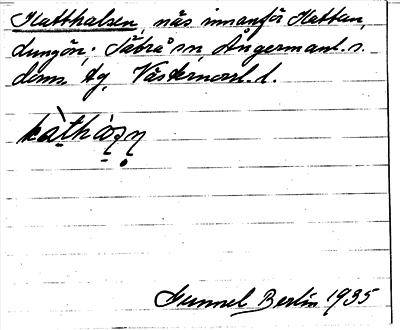 Katthalsen, näs innanför Kattun,
dungön; Säbrå sn, Ångermanl. s.
doms. tg, Västernorrl. l.
kàthàsn
Gunnel Berlin 1935